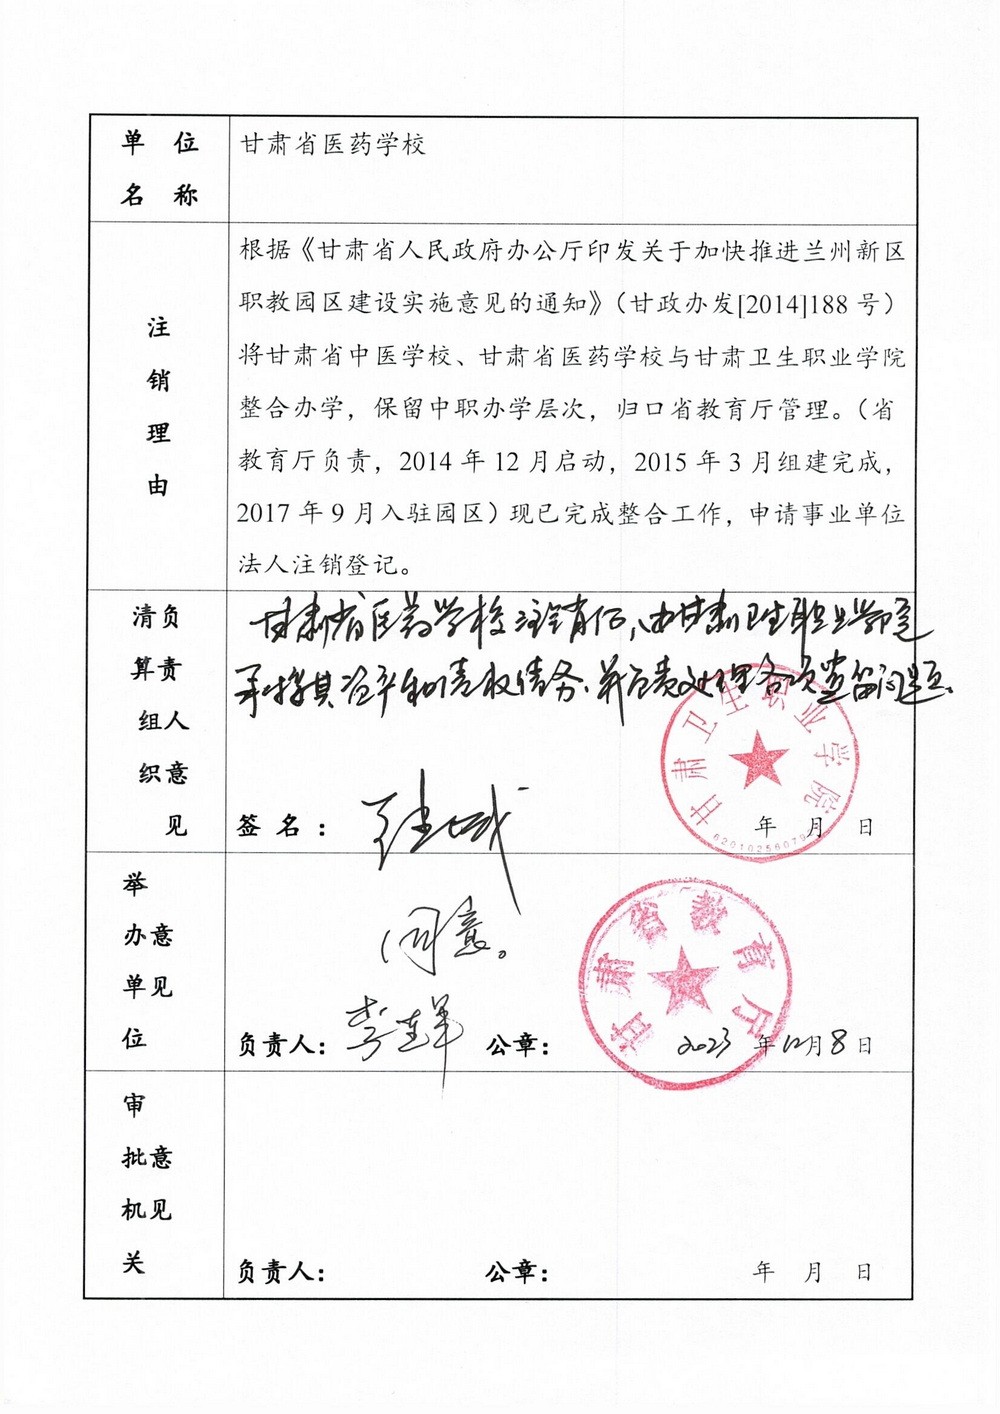 单 位
名 称
甘肃省医药学校
注
销
理
由
根据《甘肃省人民政府办公厅印发关于加快推进兰州新区
职教园区建设实施意见的通知》（甘政办发[2014]188 号）
将甘肃省中医学校、甘肃省医药学校与甘肃卫生职业学院
整合办学，保留中职办学层次，归口省教育厅管理。（省
教育厅负责，2014 年 12 月启动，2015 年 3 月组建完成，
2017 年 9 月入驻园区）现已完成整合工作，申请事业单位
法人注销登记。
清负
算责
组人
织意
见
甘肃省医药学校注销后，由甘肃卫生职业学院
承接其汔年和债权债务、并负责处理各项遗留问题。
甘肃卫生职业学院
6201025607
签 名 ：
年 月 日
举
办意
单见
位
同意。
负责人：
公章：
甘肃省教育厅
2023 年 12 月 8 日
审
批意
机见
关
负责人：
公章：
年 月 日